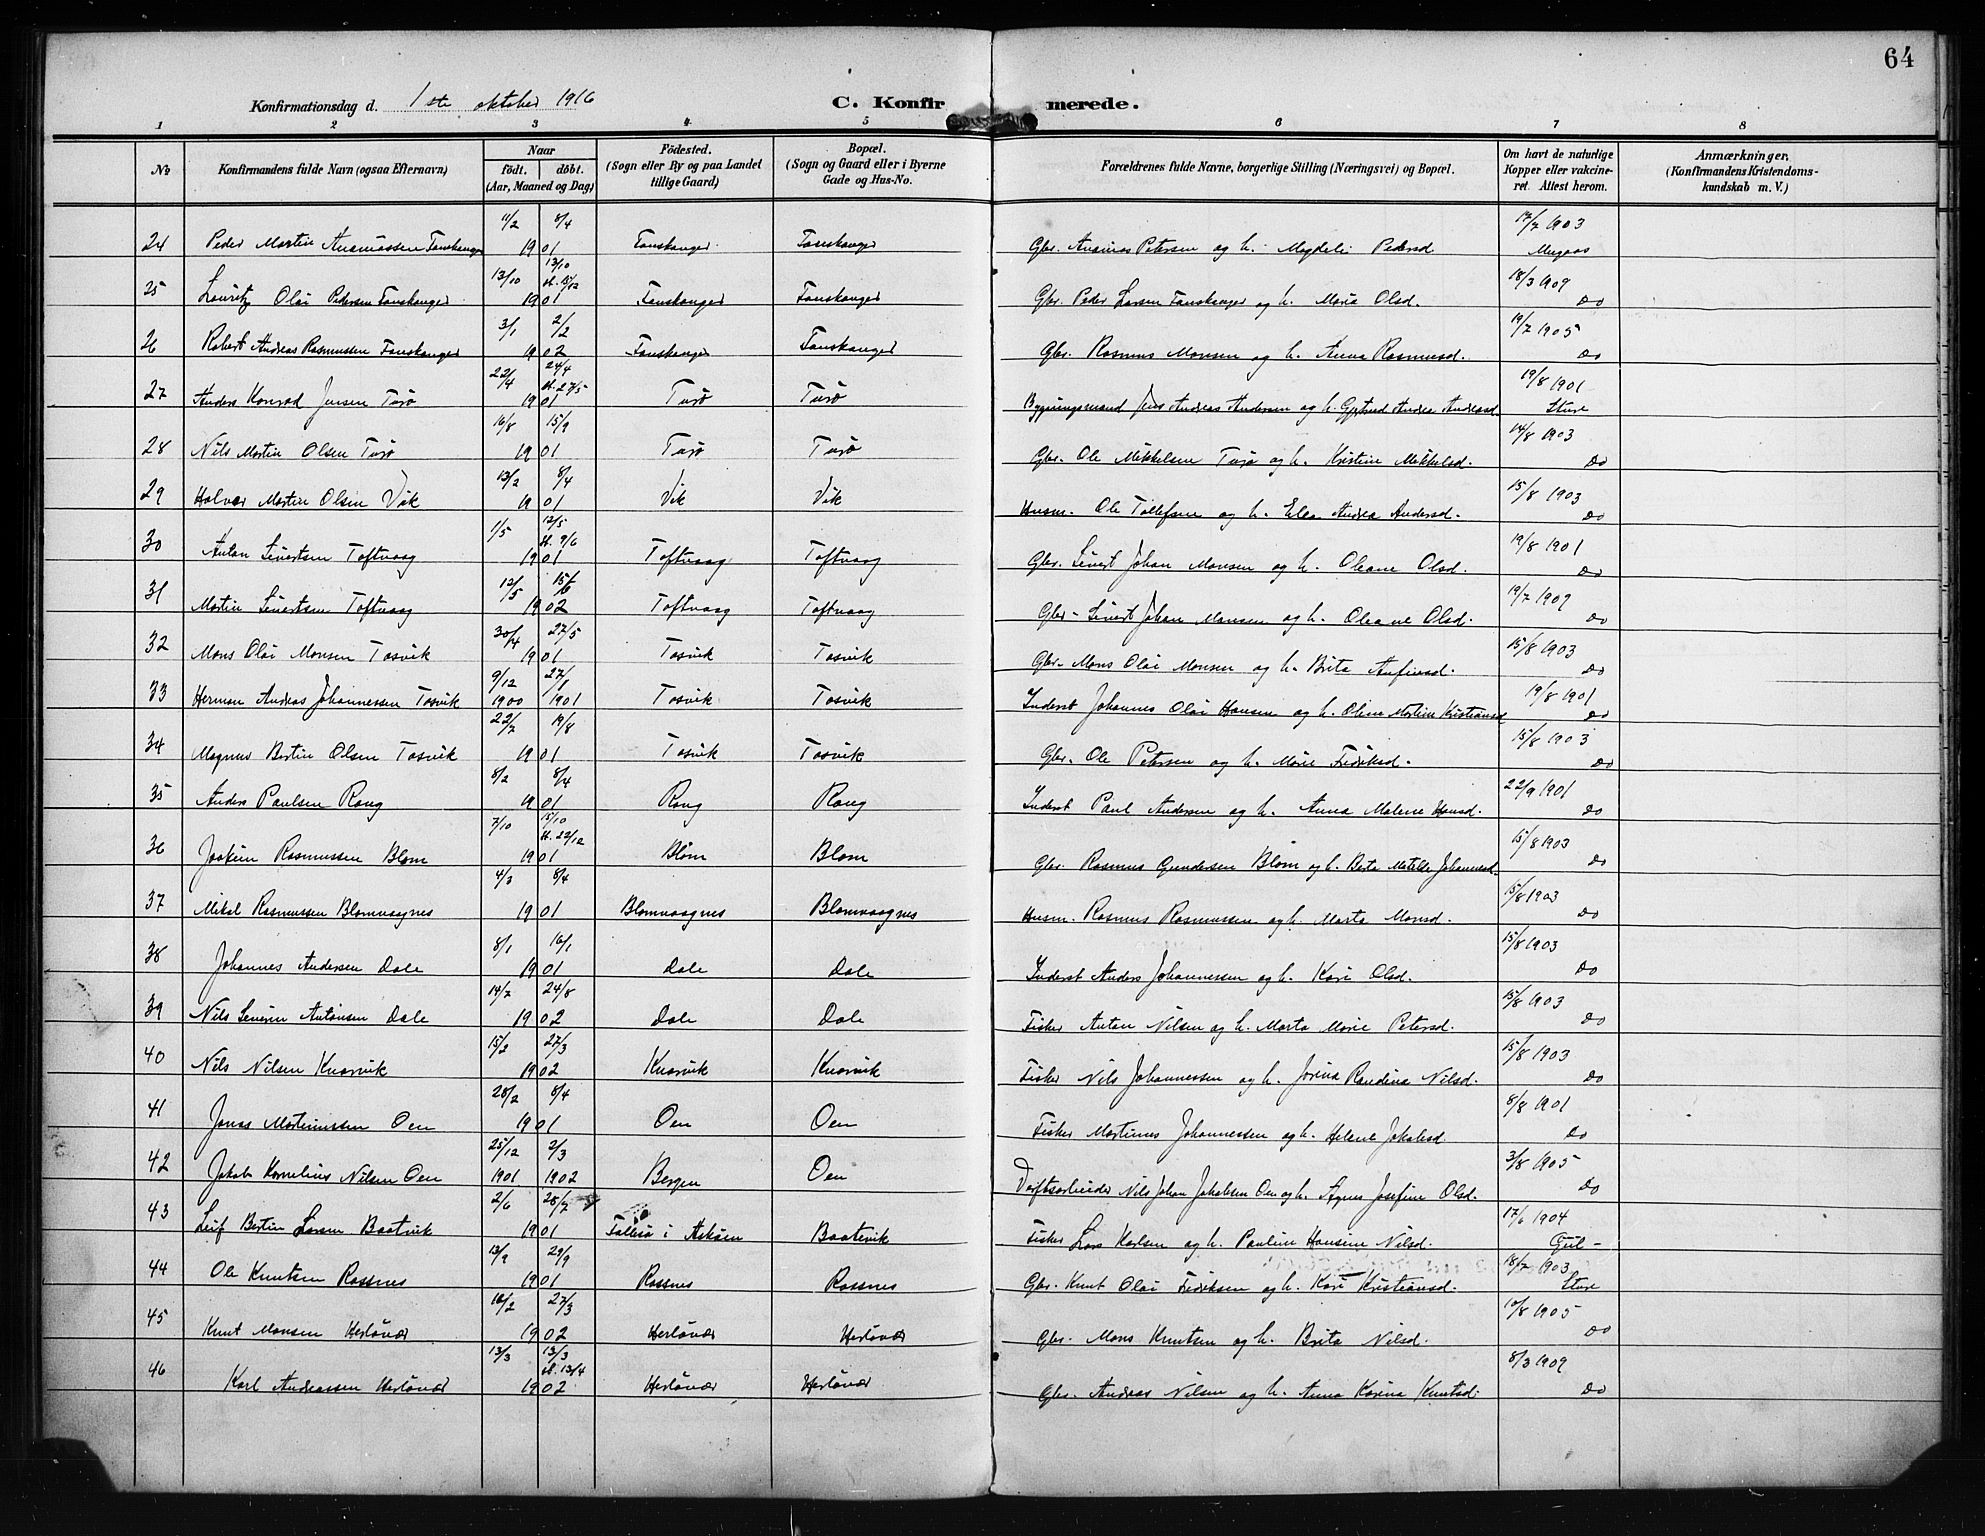 64
Konfirmationsdag d. 1ste oktober 1916 C. Konfirmerede.
1 2 3 4 5 6 7 8
No Konfirmandens fulde Navn (ogsaa Efternavn) Naar født. døbt. (Aar, Maaned og Dag) Fødested. (Sogn eller By og paa Landet tillige Gaard) Bopæl. (Sogn og Gaard eller i Byerne Gade og Hus-No. Forældrenes fulde Navne, borgerlige Stilling (Næringsvei) og Bopæl. Om havt de naturlige Kopper eller vakcineret. Attest herom. Anmærkninger, (Konfirmandens Kristendomskundskab m. V.)
24 Peder Martin Rasmussen Tanskanger 11/2 8/4 1901 Tanskanger Tanskanger Gbr. Petersen og h. Magdeli Pedersd 17/7 1903
25 Lauritz Olai Pedersen Tanskanger 13/10 13/10 st. 15/12 1901 Tanskanger Tanskanger Gbr. Peder Larsen Tanskanger og h. Maria Olsd. 18/3 1909 Do
26 Robert Andreas Rasmussen Tanskanger 3/1 2/2 1902 Tanskanger Tanskanger Gbr. Rasmus Monsen og h. Anna Rasmusd. 19/7 1905 Do
27 Anders Konrad Jensen Turø 22/4 24/4 st. 27/5 1901 Turø Turø Bygningsmand Jens Andreas Andersen og h. Gjertrud Andrea Andersd 19/8 1901 Sture
28 Nils Martin Olsen Turø 16/8 15/9 1901 Turø Turø Gbr. Ole Mikkelsen Turø og h. Kristine Mikkelsd. 14/8 1903 Do
29 Halvar Martin Olsen Vik 13/2 8/4 1901 Vik Vik Husm. Ole Tollefsen og h. Elen Andrea Andersd. 15/8 1903 Do
30 Anton Sivertsen Toftvaag 1/5 12/5 st. 9/6 1901 Toftvaag Toftvaag Gbr. Sivert Johan Monsen og h. Oleane Olsd. 19/8 1901 Do
31 Martin Sivertsen Toftvaag 12/5 15/6 1902 Toftvaag Toftvaag Gbr. Sivert Johan Monsen og h. Oleane Olsd. 19/7 1909 Do
32 Mons Olai Monsen Tosvik 30/4 27/5 1901 Tosvik Tosvik Gbr. Mons Olai Monsen og h. Brita Anfinsd. 15/8 1903 Do
33 Herman Andreas Johannessen Tosvik 9/12 1900 27/1 1901 Tosvik Tosvik Inderst Johannes Olai Hansen og h. Oline Martine Kristiansd 19/8 1901 Do
34 Magnus Bertin Olsen Tosvik 22/7 19/8 1901 Tosvik Tosvik Gbr. Ole Petersen og h. Marie Fedriksd. 15/8 1903 Do
35 Anders Paulsen Rong 8/2 8/4 1901 Rong Rong Inderst Paul Andersen og h. Anna Malene Hansd. 22/9 1901 Do
36 Joakim Rasmussen Blom 7/10 15/10 st. 22/12 1901 Blom Blom Gbr. Rasmus Gundersen Blom og h. Berta Matilde Johannesd. 15/8 1903 Do
37 Mikal Rasmussen Blomvaagnes 4/3 8/4 1901 Blomvaagnes Blomvaagnes Husm. Rasmus Rasmussen og h. Marta Monsd. 15/8 1903 Do
38 Johannes Andersen Dale 8/1 16/1 1901 Dale Dale Inderst Anders Johannessen og h. Kari Olsd. 15/8 1903 Do
39 Nils Severin Antonsen Dale 14/7 24/8 1902 Dale Dale Fisker Anton Nilsen og h. Marta Marie Petersd. 15/8 1903 Do
40 Nils Nilsen Knarvik 15/2 27/3 1902 Knarvik Knarvik Fisker Nils Johannessen og h. Jorina Randina Nilsd. 15/8 1903 Do
41 Jonas Martinussen Oen 28/2 8/4 1901 Oen Oen Fisker Martinus Johannessen og h. Helene Jakobsd 8/8 1901 Do
42 Jakob Kornelius Nilsen Oen 25/12 1901. 2/3 1902 Bergen Oen Nils Johan Jakobsen Oen og h. Agnes Josefine Olsd. 3/8 1905 Do
43 Leif Bertin Larsen Baatevik 2/6 28/7 1901 i Askøen Baatevik Fisker Lars Karlsen og h. Pauline Hansine Nilsd. 17/6 1904
44 Ole Knutsen Rossnes 13/9 29/9 1901 Rossnes Rossnes Gbr. Knut Olai Fedriksen og h. Kari Kristiansd. 18/7 1903 Sture
45 Knut Monsen Herløvær 16/2 27/3 1902 Herløvær Herløvær Gbr. Mons Knutsen og h. Brita Nilsd. 10/8 1905 Do
46 Karl Andreassen Herløvær 13/3 13/3 st. 13/4 1902 Herløvær Herløvær Gbr. Andreas Nilsen og h. Anna Karina Knutsd. 8/3 1909 Do